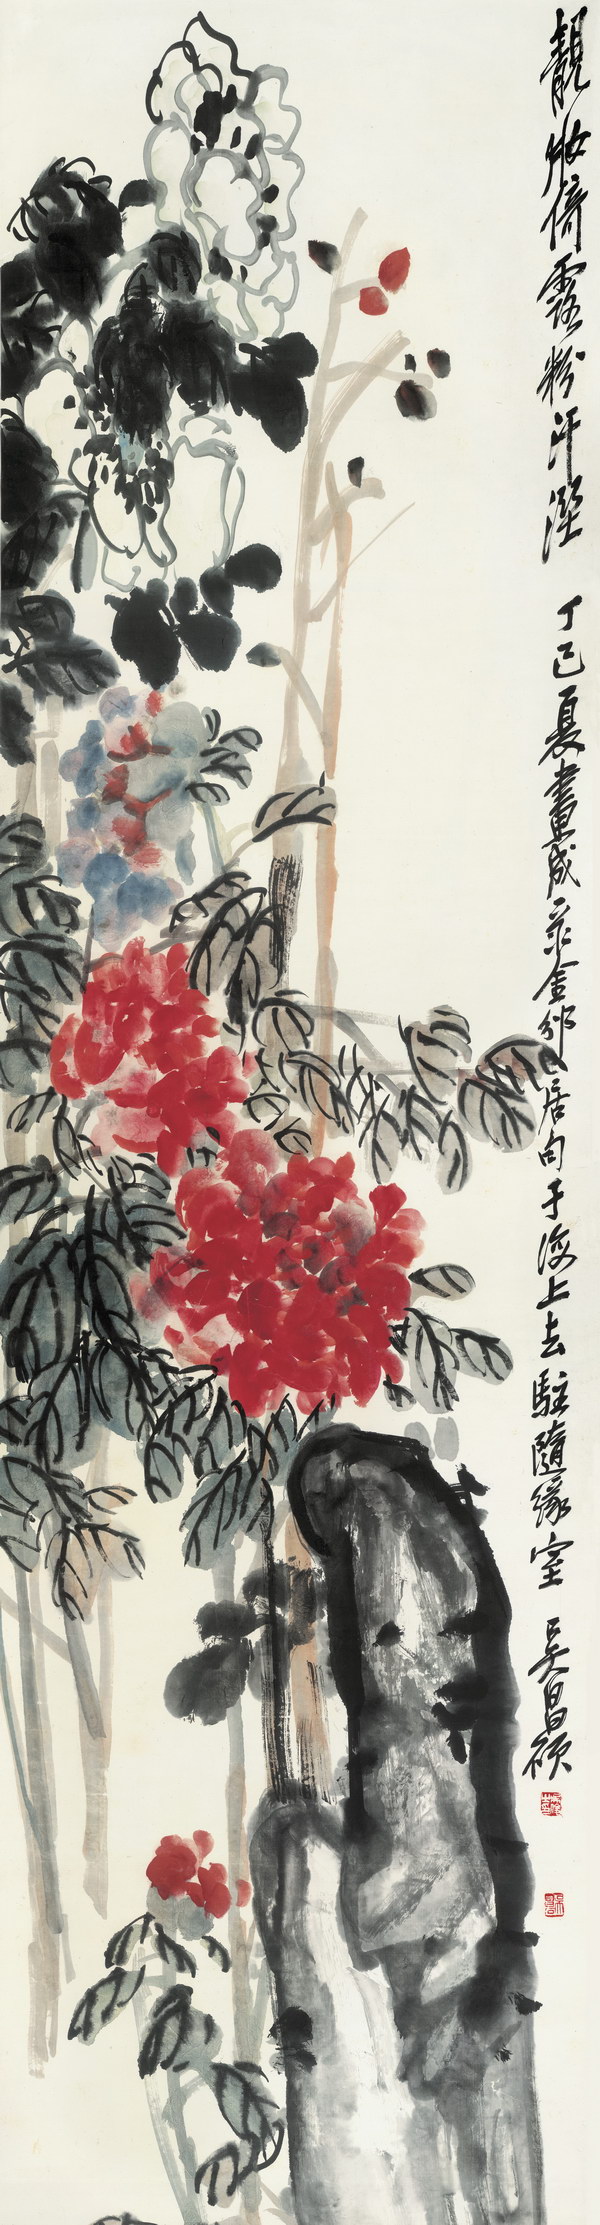 靚妝倚露粉汗溼　丁巳夏畫成录金邠居句于海上去駐隨緣室　吳昌碩